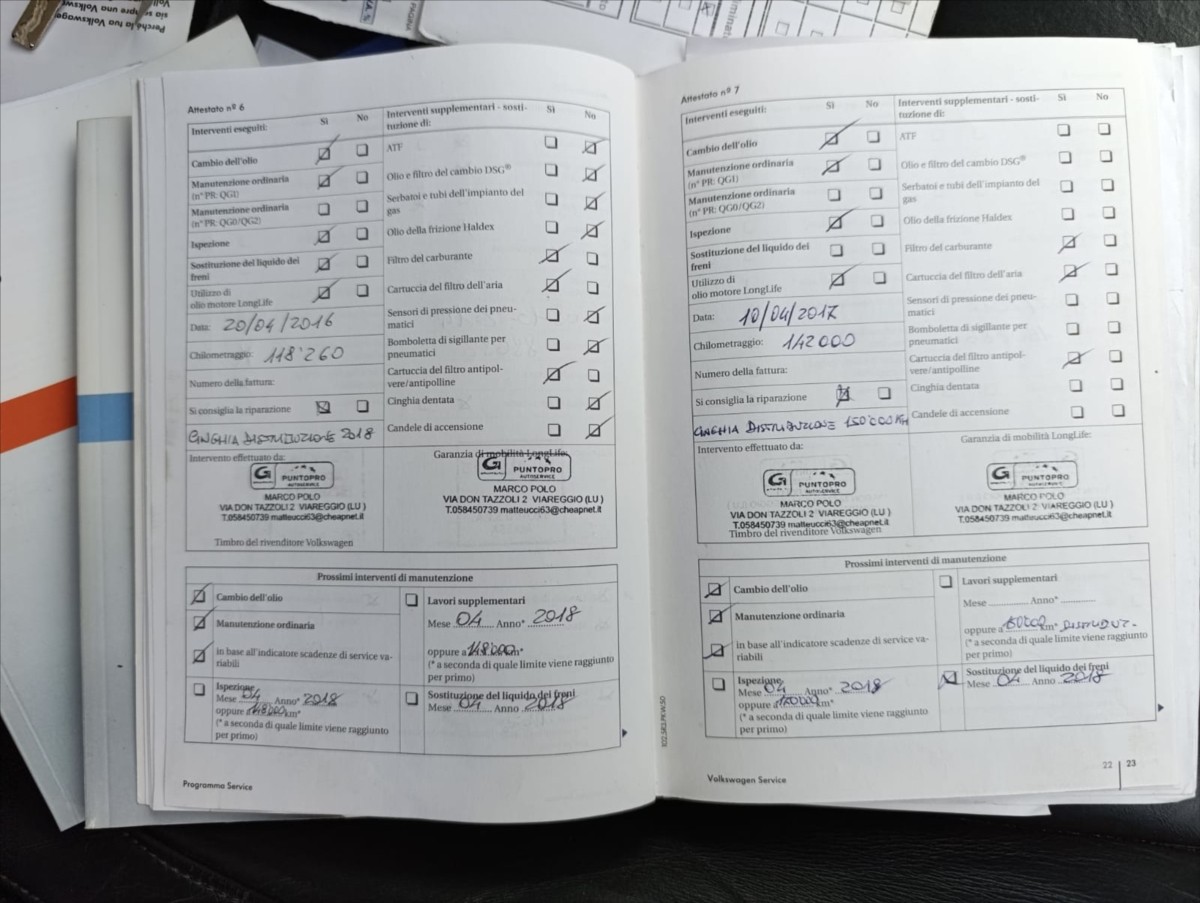 Perché la tua Volkswage
sia sempre una
Volksw
PAGINA
Attestato nº 6
Interventi eseguiti:
Sì
No
Interventi supplementari - sosti-
tuzione di:
Sì
No
Cambio dell'olio
ATF
Manutenzione ordinaria
(nº PR: QG1)
Olio e filtro del cambio DSG®
Manutenzione ordinaria
(nº PR: QG0/QG2)
Serbatoi e tubi dell'impianto del
gas
Ispezione
Olio della frizione Haldex
Sostituzione del liquido dei
freni
Filtro del carburante
Utilizzo di
olio motore LongLife
Cartuccia del filtro dell'aria
Data: 20/04/2016
Sensori di pressione dei pneu-
matici
Chilometraggio: 118'260
Bomboletta di sigillante per
pneumatici
Numero della fattura:
Cartuccia del filtro antipol-
vere/antipolline
Si consiglia la riparazione
Cinghia dentata
CINGHIA DISTRIBUZIONE 2018
Candele di accensione
Intervento effettuato da:
Garanzia di mobilità LongLife:
G PUNTOPRO
AUTOSERVICE
MARCO POLO
VIA DON TAZZOLI 2 VIAREGGIO (LU )
T.058450739 matteucci63@cheapnet.it
Timbro del rivenditore Volkswagen
G PUNTOPRO
AUTOSERVICE
MARCO POLO
VIA DON TAZZOLI 2 VIAREGGIO (LU )
T.058450739 matteucci63@cheapnet.it
Prossimi interventi di manutenzione
Cambio dell'olio
Manutenzione ordinaria
in base all'indicatore scadenze di service va-
riabili
Ispezione
Mese 04 Anno* 2018
oppure a 148000 km*
(* a seconda di quale limite viene raggiunto
per primo)
Lavori supplementari
Mese 04 Anno* 2018
oppure a 148000 km*
(* a seconda di quale limite viene raggiunto
per primo)
Sostituzione del liquido dei freni
Mese 04 Anno 2018
Programma Service
Attestato nº 7
Interventi eseguiti:
Sì
No
Interventi supplementari - sosti-
tuzione di:
Sì
No
Cambio dell'olio
ATF
Manutenzione ordinaria
(nº PR: QG1)
Olio e filtro del cambio DSG®
Manutenzione ordinaria
(nº PR: QG0/QG2)
Serbatoi e tubi dell'impianto del
gas
Ispezione
Olio della frizione Haldex
Sostituzione del liquido dei
freni
Filtro del carburante
Utilizzo di
olio motore LongLife
Cartuccia del filtro dell'aria
Data: 10/04/2017
Sensori di pressione dei pneu-
matici
Chilometraggio: 142000
Bomboletta di sigillante per
pneumatici
Numero della fattura:
Cartuccia del filtro antipol-
vere/antipolline
Si consiglia la riparazione
Cinghia dentata
CINGHIA DISTRIBUZIONE 150'000 KM
Candele di accensione
Intervento effettuato da:
Garanzia di mobilità LongLife:
G PUNTOPRO
AUTOSERVICE
MARCO POLO
VIA DON TAZZOLI 2 VIAREGGIO (LU )
T.058450739 matteucci63@cheapnet.it
Timbro del rivenditore Volkswagen
G PUNTOPRO
AUTOSERVICE
MARCO POLO
VIA DON TAZZOLI 2 VIAREGGIO (LU )
T.058450739 matteucci63@cheapnet.it
Prossimi interventi di manutenzione
Cambio dell'olio
Manutenzione ordinaria
in base all'indicatore scadenze di service va-
riabili
Ispezione
Mese 04 Anno* 2018
oppure a km*
(* a seconda di quale limite viene raggiunto
per primo)
Lavori supplementari
Mese Anno*
oppure a km*
(* a seconda di quale limite viene raggiunto
per primo)
Sostituzione del liquido dei freni
Mese 04 Anno 2018
Volkswagen Service
22 | 23